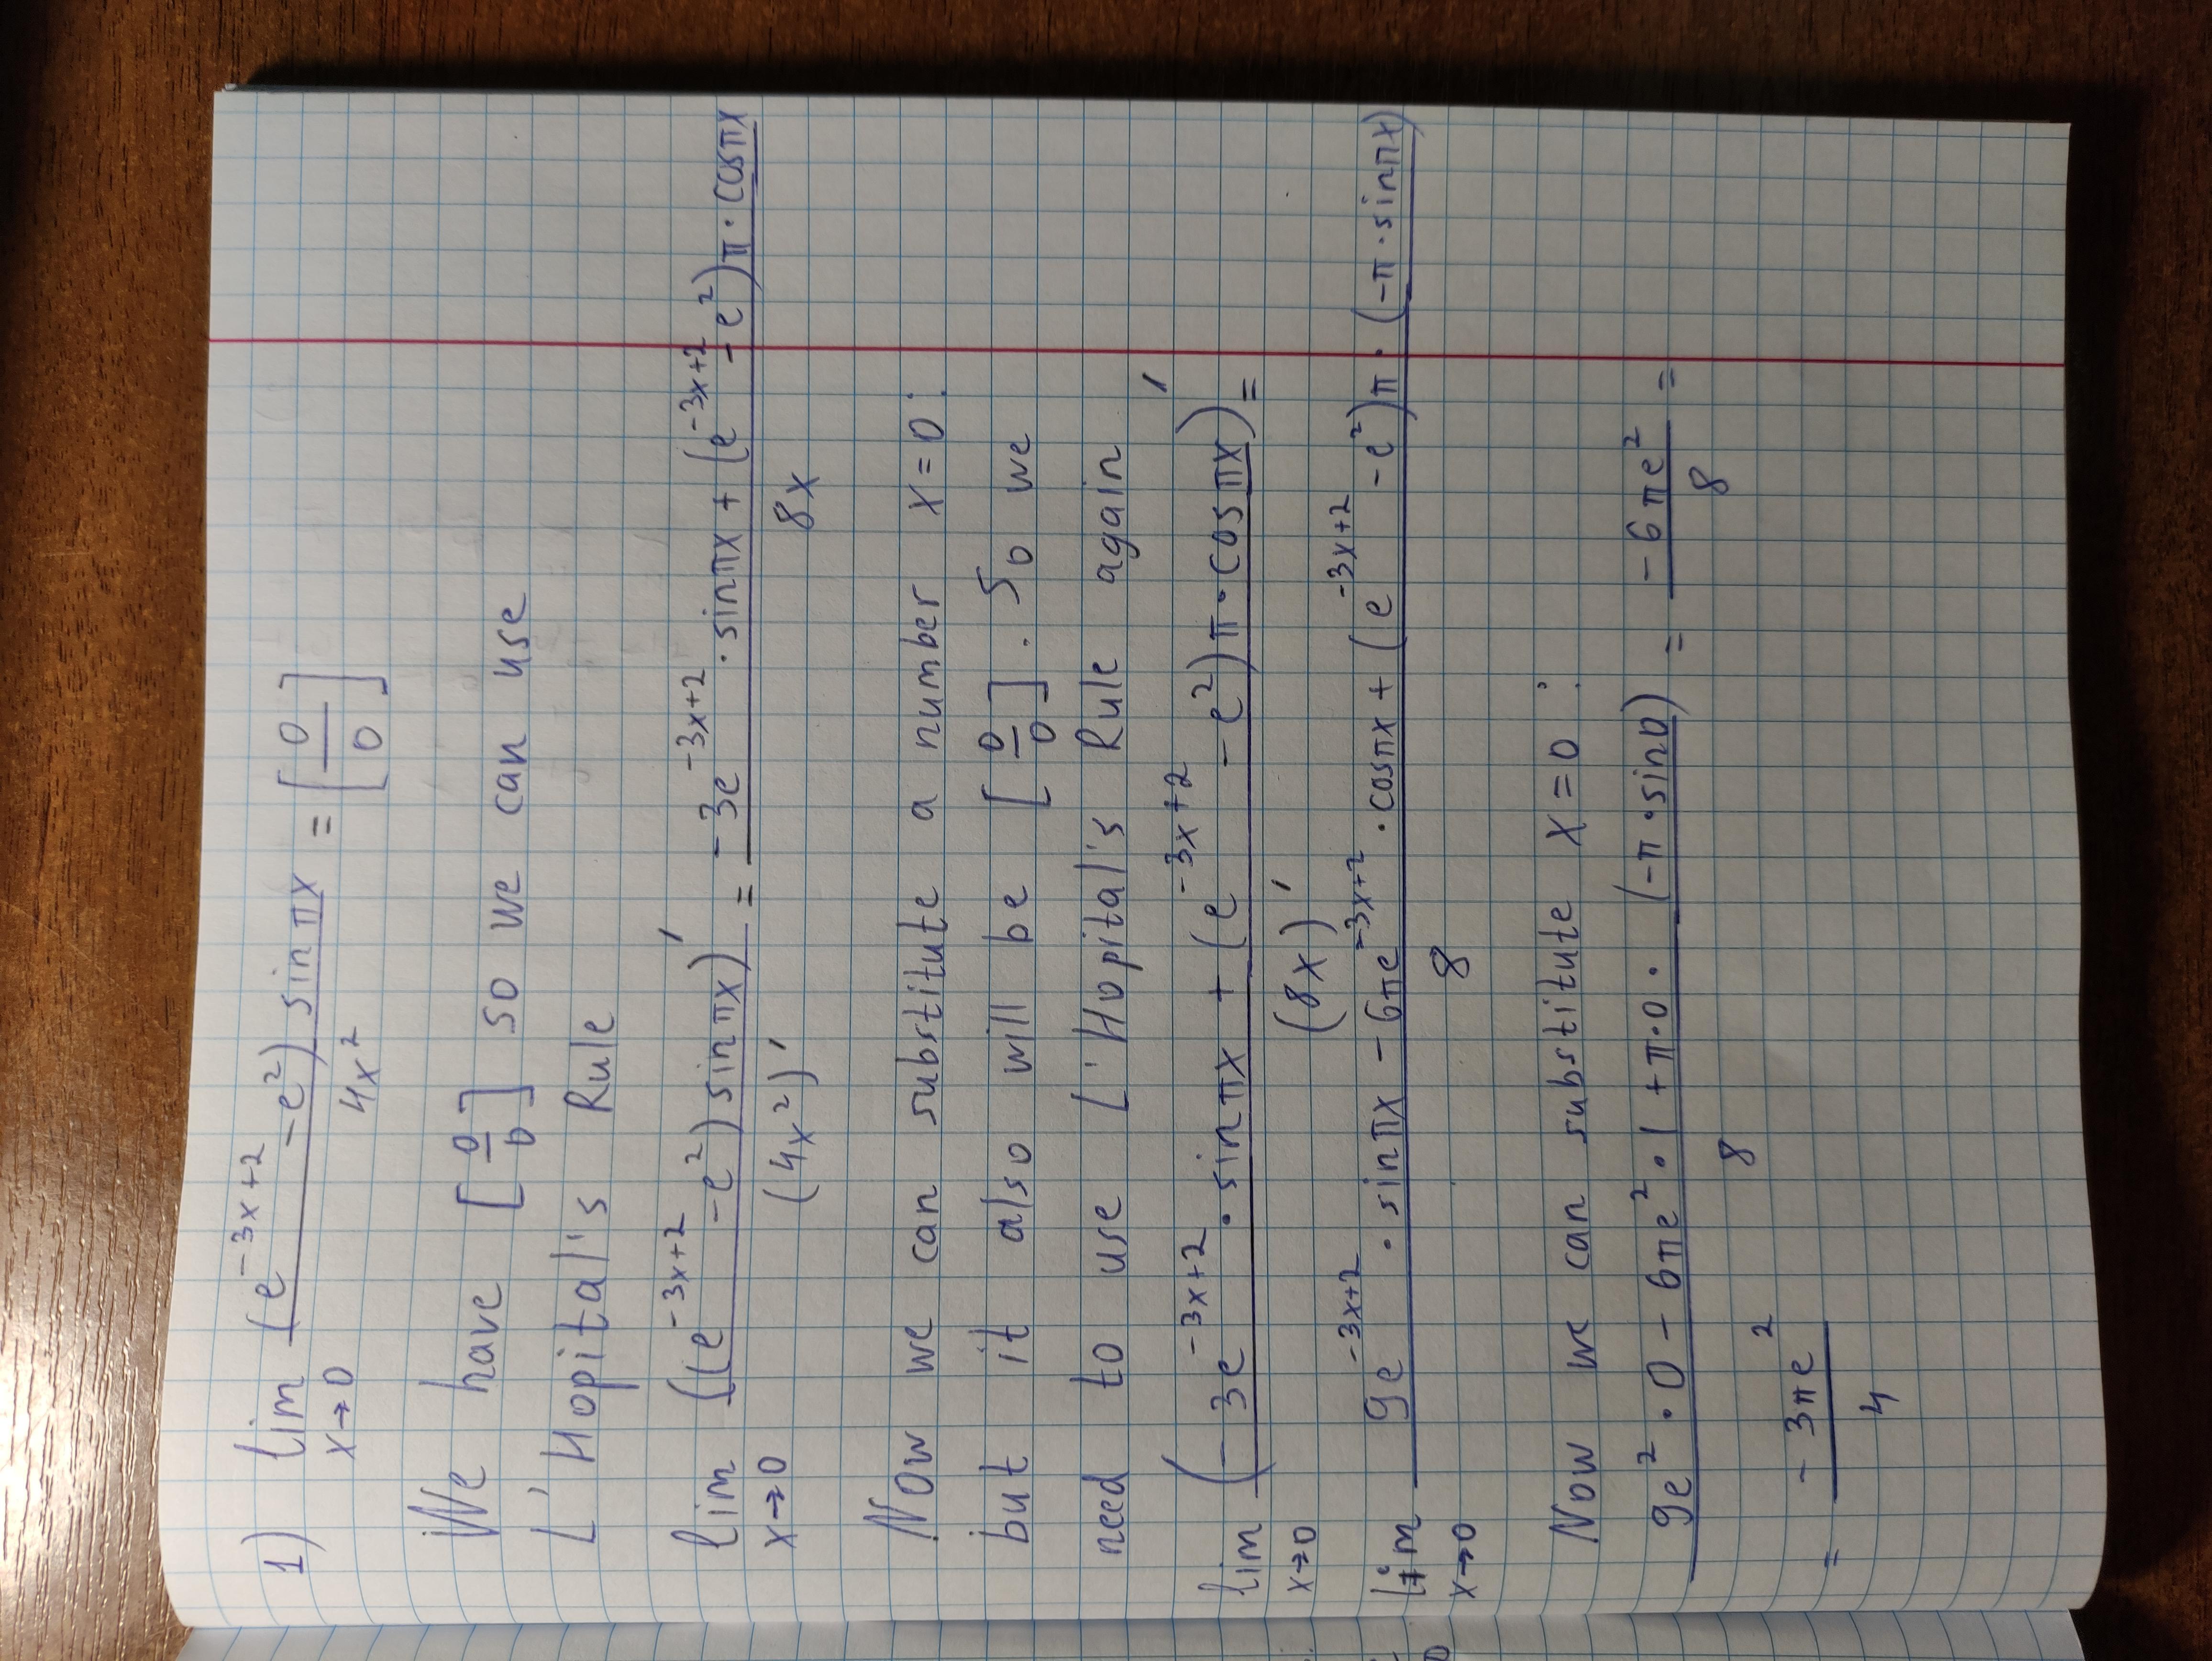 1) lim (e^(-3x+2) - e^2) sin πx / 4x^2 = [0/0]
x→0
We have [0/0] so we can use
L'Hopital's Rule
lim ((e^(-3x+2) - e^2) sin πx)' / (4x^2)' = -3e^(-3x+2) · sin πx + (e^(-3x+2) - e^2)π · cos πx / 8x
x→0
Now we can substitute a number x=0:
but it also will be [0/0]. So we
need to use L'Hopital's Rule again
lim (-3e^(-3x+2) · sin πx + (e^(-3x+2) - e^2)π · cos πx)' / (8x)' =
x→0
lim 9e^(-3x+2) · sin πx - 6πe^(-3x+2) · cos πx + (e^(-3x+2) - e^2)π · (-π · sin πx) / 8
x→0
Now we can substitute x=0:
9e^2 · 0 - 6πe^2 · 1 + π·0 · (-π · sin 0) / 8 = -6πe^2 / 8 =
= -3πe^2 / 4